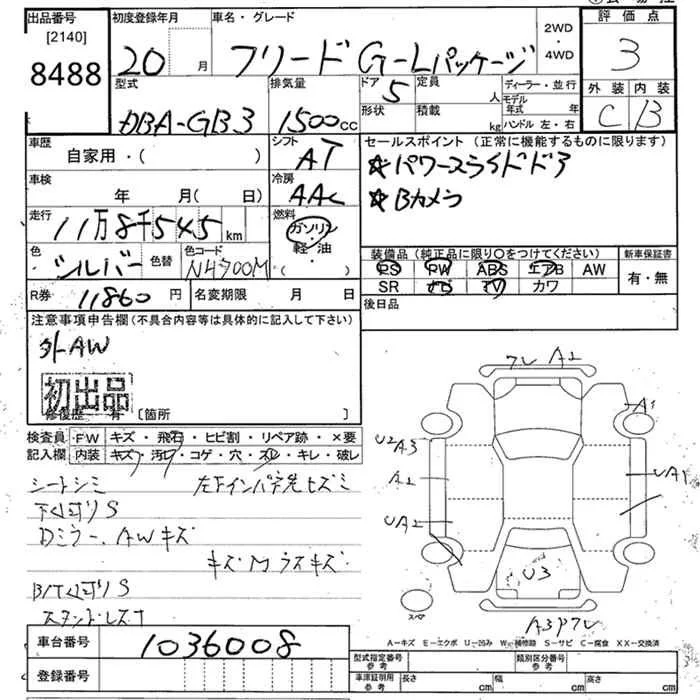 出品番号 初度登録年月 車名・グレード 2WD・4WD 評価点
[2140]
8488 20 月 フリード G-Lパッケージ 3
型式 排気量 ドア 定員 ディーラー・並行 外装 内装
DBA-GB3 1500cc 5 人 モデル年式 年 C B
形状 積載 kg ハンドル 左・右
車歴 シフト セールスポイント (正常に機能するものに限ります)
自家用・( ) AT ☆パワースライドドア
車検 冷房 ☆Bカメラ
年 月( 日) AAC
走行 燃料
11万8千545km ガソリン
軽・油
色 色替 色コード ( ) 装備品(純正品に限り〇をつけてください) 新車保証書
シルバー NH700M PS PW ABS エアB AW 有・無
R券 11860円 名変期限 月 日 SR ナビ TV カワ
後日品
注意事項申告欄(不具合内容等は具体的に記入して下さい)
外AW
初出品
修復歴 有 [箇所 ]
検査員 FW キズ・飛石・ヒビ割・リペア跡・×要
記入欄 内装 キズ・汚れ・コゲ・穴・スレ・キレ・破レ
シートシミ
下くぼりS
Dミラー、AWキズ
B/Tくぼり S
フレ A2
A1
U2 A3
A2
UA1
UA2
U3
スペア
A3 フレ
A-キズ E-エクボ U-凹み W-補修跡 S-サビ C-腐食 XX-交換済
車台番号 1036008 型式指定番号 参考 類別区分番号 参考
登録番号 車庫証明用 参考 長さ cm 幅 cm 高さ cm